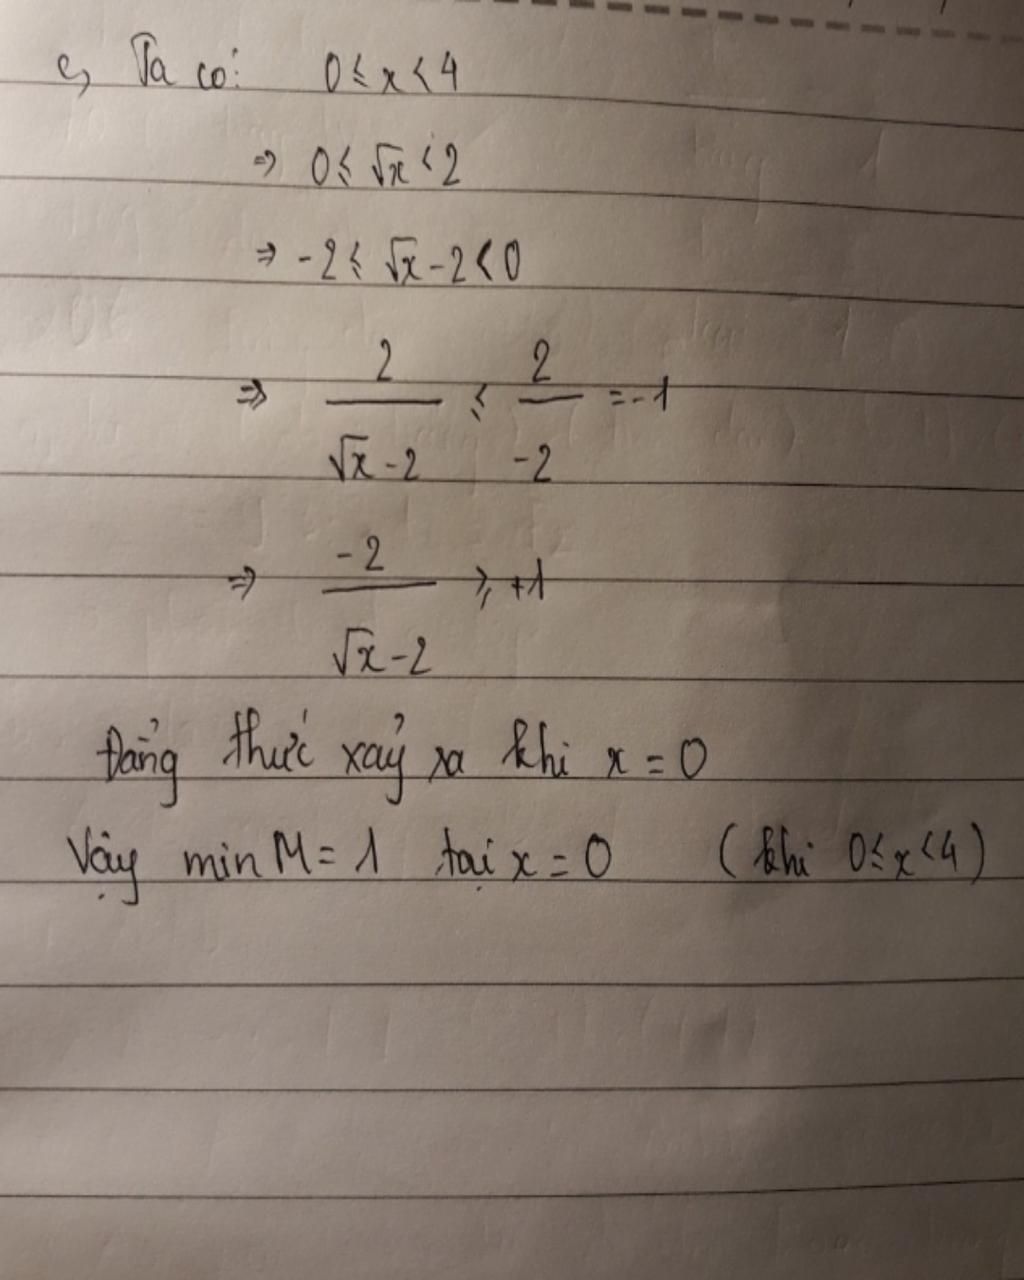 c, Ta có: 0 ≤ x < 4
⇒ 0 ≤ √x < 2
⇒ -2 ≤ √x - 2 < 0
⇒ 2/(√x - 2) ≤ 2/-2 = -1
⇒ -2/(√x - 2) ≥ +1
Đẳng thức xảy ra khi x = 0
Vậy min M = 1 tại x = 0 (khi 0 ≤ x < 4)